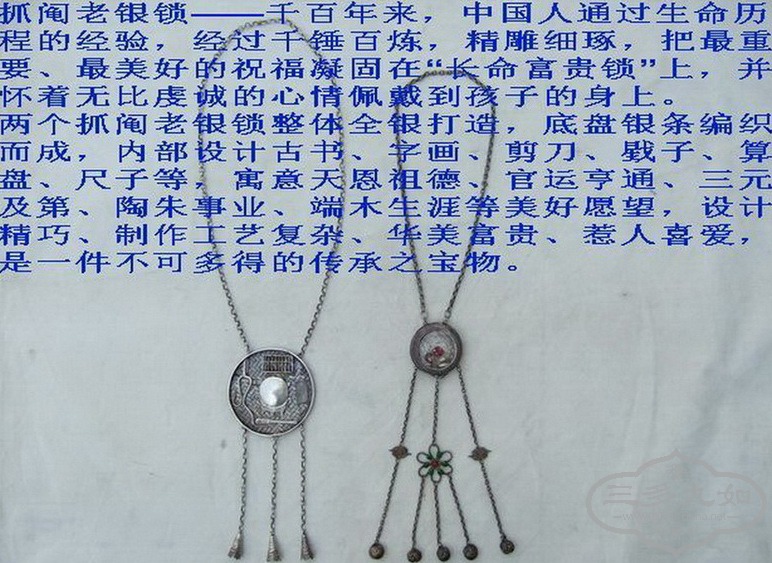 抓阄老银锁——千百年来，中国人通过生命历
程的经验，经过千锤百炼，精雕细琢，把最重
要、最美好的祝福凝固在“长命富贵锁”上，并
怀着无比虔诚的心情佩戴到孩子的身上。
两个抓阄老银锁整体全银打造，底盘银条编织
而成，内部设计古书、字画、剪刀、戥子、算
盘、尺子等，寓意天恩祖德、官运亨通、三元
及第、陶朱事业、端木生涯等美好愿望，设计
精巧、制作工艺复杂、华美富贵、惹人喜爱，
是一件不可多得的传承之宝物。